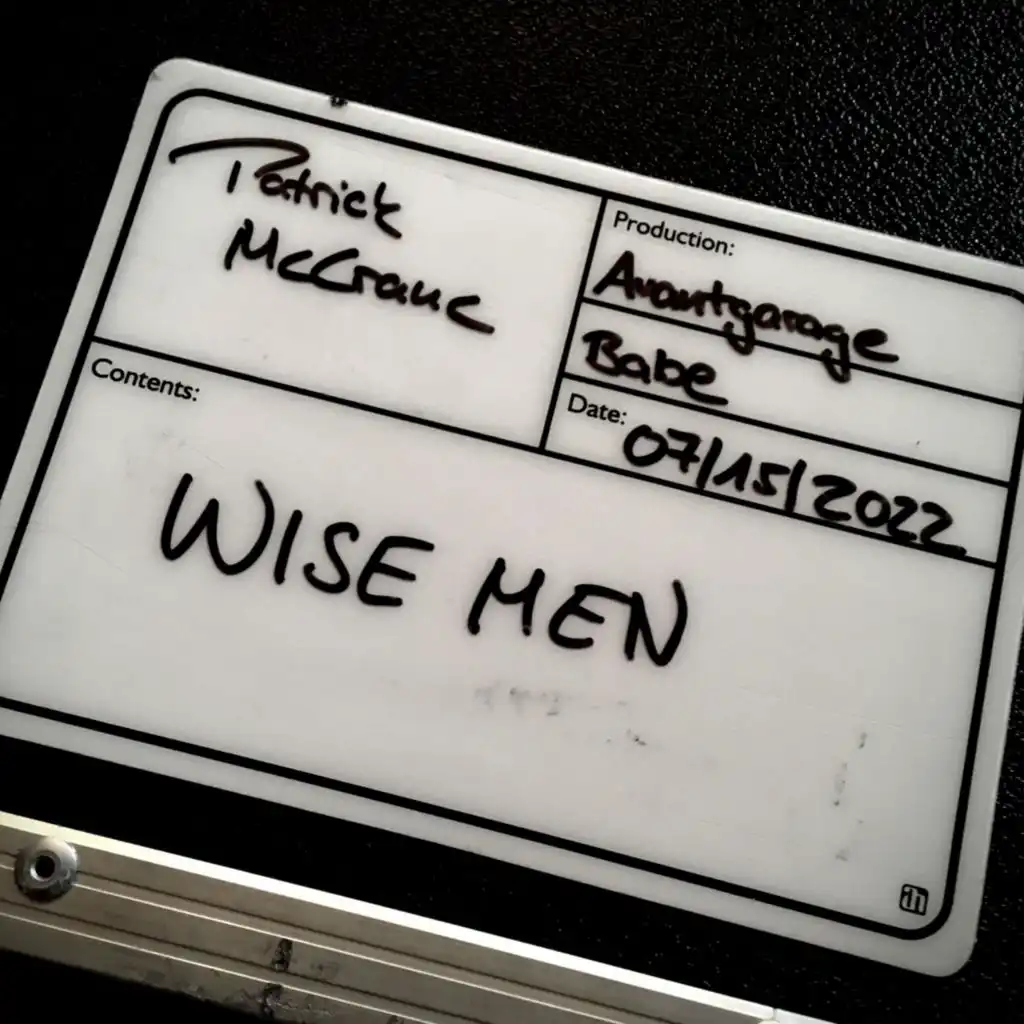 Patrick
McCrane
Production:
Avantgarage
Babe
Date: 07/15/2022
Contents:
WISE MEN